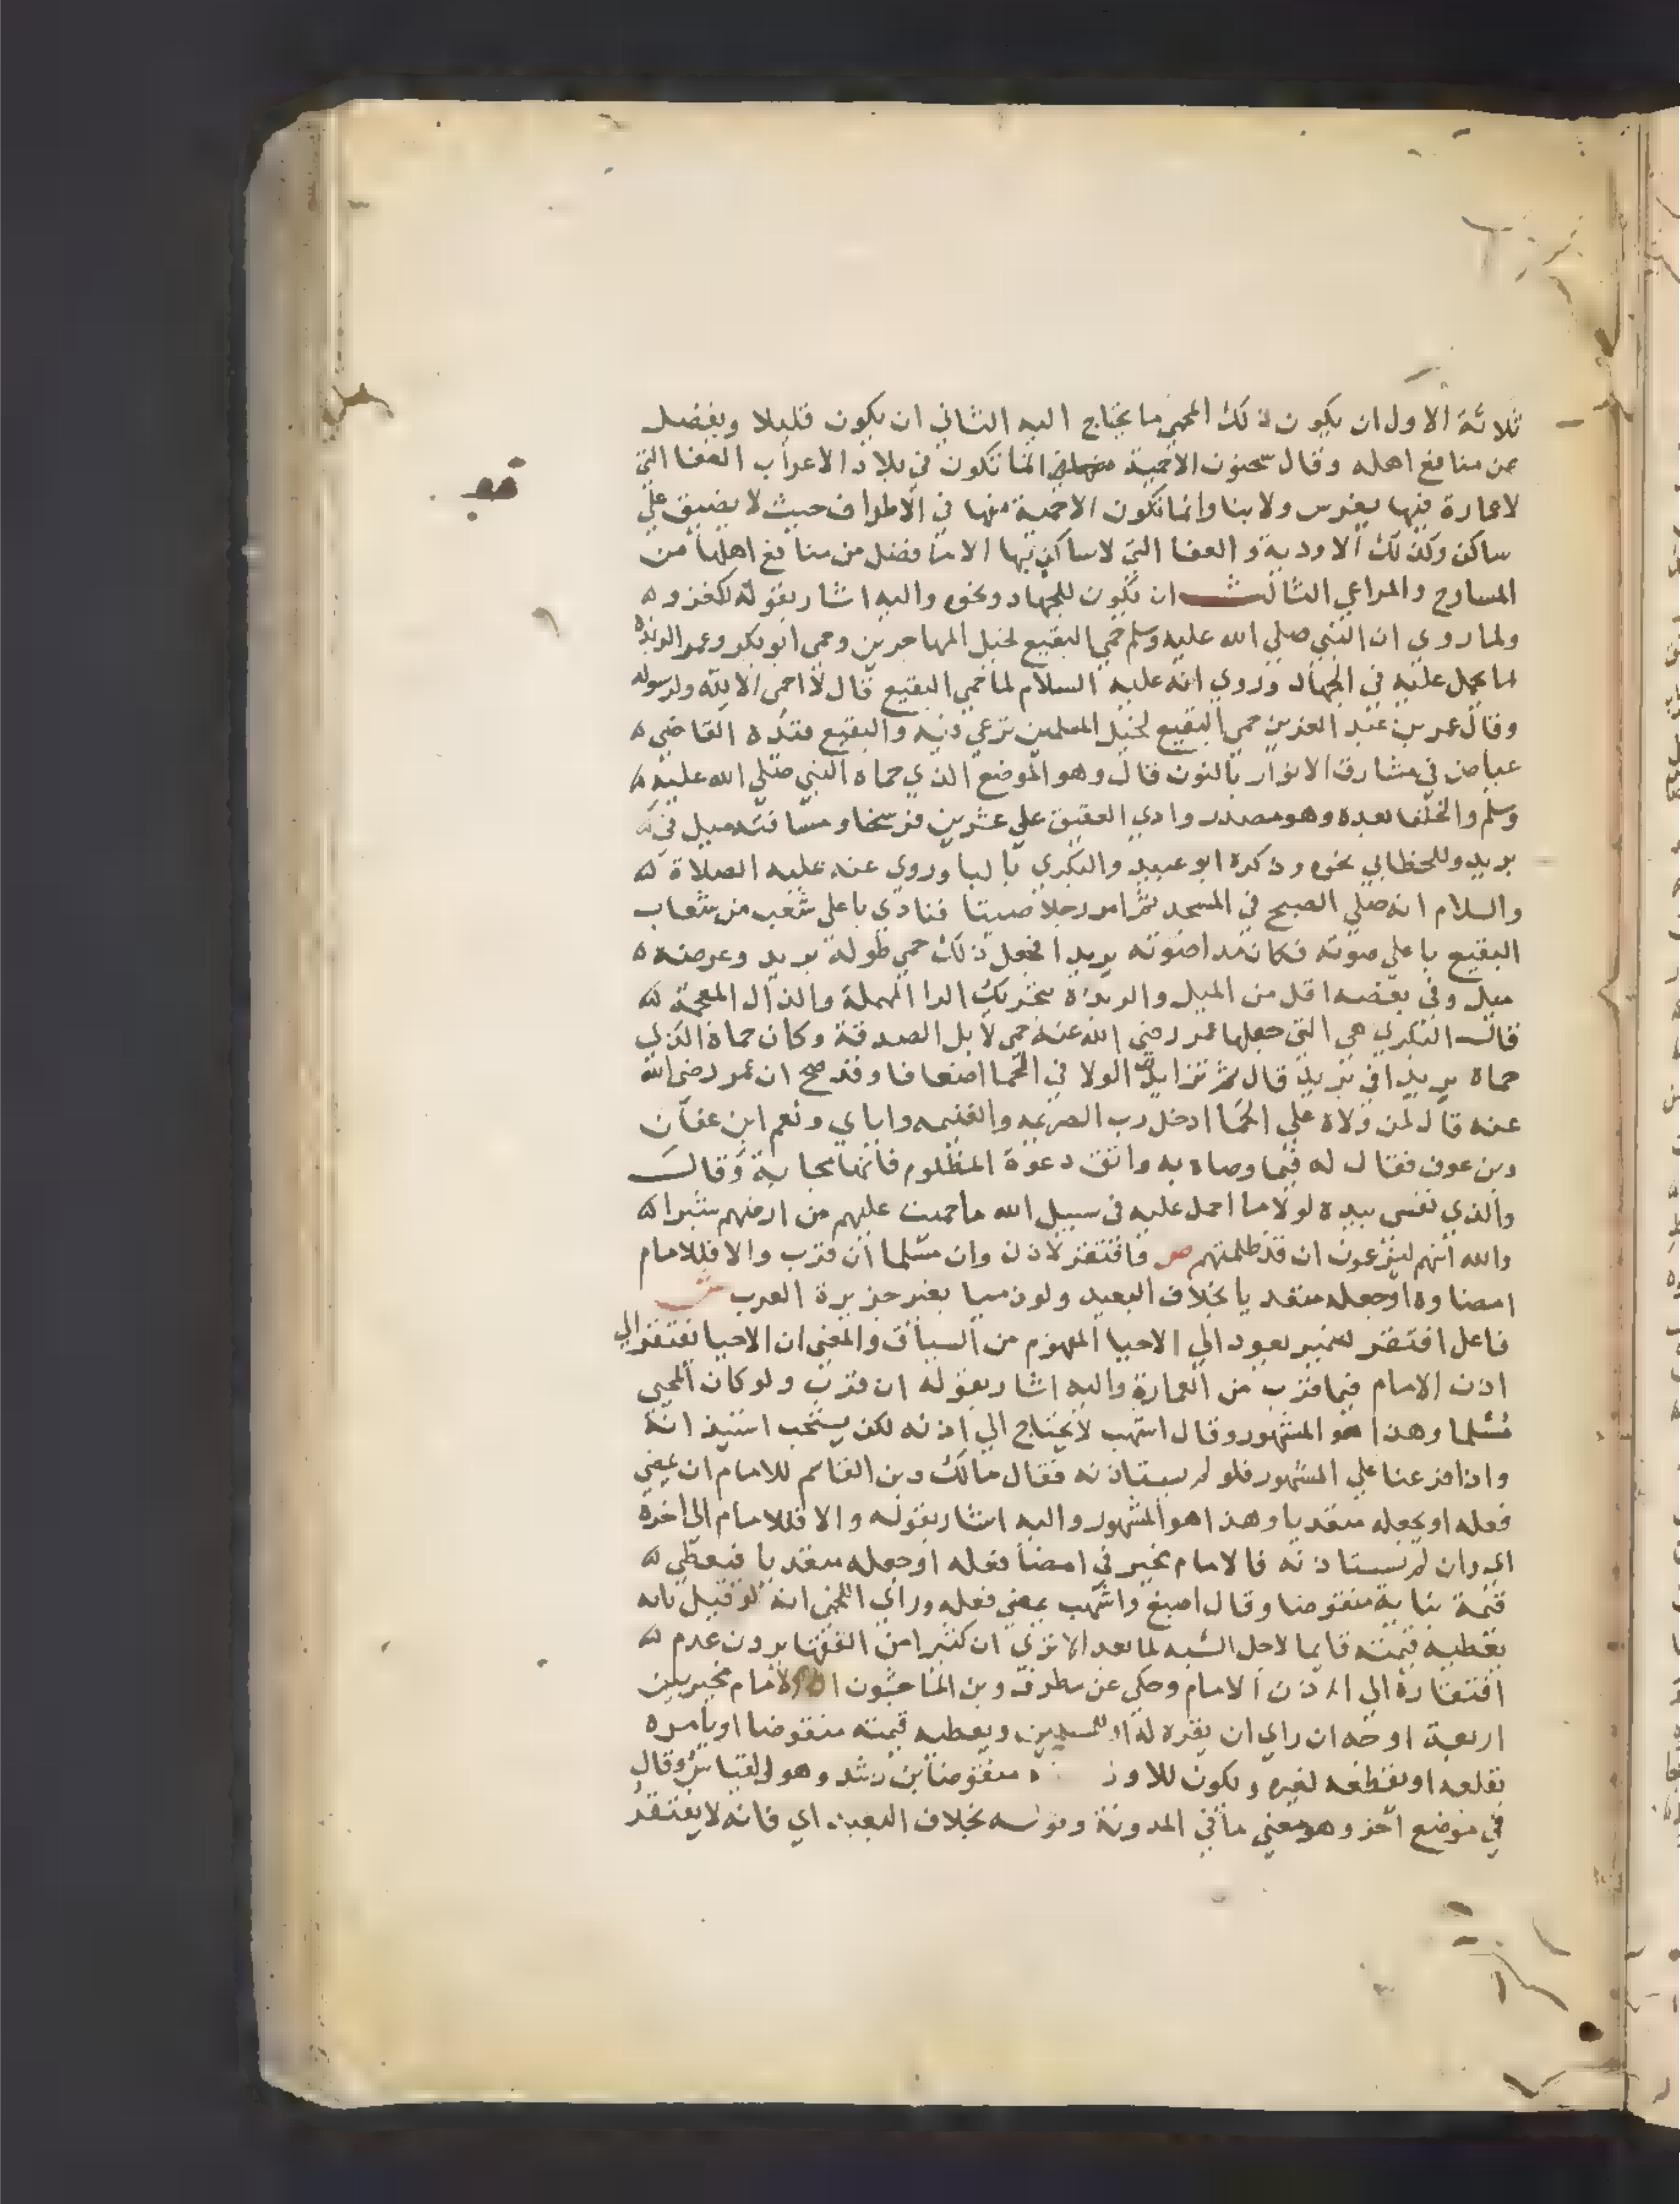 ثلاثة الاول ان يكون ذلك المحمي ما يحتاج اليه الثاني ان يكون قليلا ويفضل
عن منافع اهله وقال سحنون الاحمية انما تكون في بلاد الاعراب العفا التي
لا عمارة فيها بغرس ولا بنا وانما تكون الاحمية منها في الاطراف حيث لا يضيق علي
ساكن وكذلك الاودية والعفا التي لا ساكن بها الا ما فضل من منافع اهلها من
المسارح والمراعي الثالث ان تكون للجهاد ونحوه واليه اشار بقوله لكغزو
ولما روي ان النبي صلي الله عليه وسلم حمي البقيع لخيل المهاجرين وحمى ابو بكر وعمر الربذة
لما يحمل عليه في الجهاد وروي انه عليه السلام لما حمي البقيع قال لا احمى الا لله ولرسوله
وقال عمر بن عبد العزيز حمي البقيع لخيل المسلمين ترعي فيه والبقيع قيده القاضي
عياض في مشارق الانوار بالنون قال وهو الموضع الذي حماه النبي صلي الله عليه
وسلم والخلفا بعده وهو صدر وادي العقيق علي عشرين فرسخا ومسافته ميل في
بريد وللخطابي نحوه وذكره ابو عبيد والبكري بالبا وروي عنه عليه الصلاة
والسلام انه صلي الصبح في المسجد ثم امر رجلا صيتا فنادي باعلى شعب من شعاب
البقيع باعلي صوته فكان مدا صوته بريدا فجعل ذلك حمي طوله بريد وعرضه
ميل وفي بعضه اقل من الميل والربذة بتحريك الرا المهملة والذال المعجمة
قال البكري هي التي جعلها عمر رضي الله عنه حمي لابل الصدقة وكان حماه الذي
حماه بريدا في بريد قال ثم تزايد الولا في الحما اضعافا وقد صح ان عمر رضي الله
عنه قال لمن ولاه علي الحما ادخل رب الصريمه والغنيمه واياي ونعم ابن عفان
وبن عوف فقال له فيما وصاه به واتق دعوة المظلوم فانها مجابة وقال
والذي نفسي بيده لولا ما احمل عليه في سبيل الله ما حميت عليهم من ارضهم شبرا
والله انهم ليزعمون ان قد ظلمتهم ص فافتقر لاذن وان مسلما ان قرب والا فللامام
امضاوه او جعله متعديا بخلاف البعيد ولو ذميا بغير جزيرة العرب ش
فاعل افتقر ضمير يعود الي الاحيا المفهوم من السياق والمعنى ان الاحيا يفتقر الي
اذن الامام فيما قرب من العمارة واليه اشار بقوله ان قرب ولو كان المحيي
مسلما وهذا هو المشهور وقال اشهب لا يحتاج الي اذنه لكن يستحب استيذانه
واذا فرعنا علي المشهور فلو لم يستاذنه فقال مالك وبن القاسم للامام ان يمضي
فعله او يجعله متعديا وهذا هو المشهور واليه اشار بقوله والا فللامام الى اخره
اي وان لم يستاذنه فالامام مخير في امضا فعله او جعله متعديا فيعطي
قيمة بنايه منقوضا وقال اصبغ واشهب يمضي فعله وراي اللخمي انه لو قيل بانه
يعطيه قيمته قايما لاجل الشبه لما بعد الا تري ان كثيرا من الفقها يرون عدم
افتقاره الي الاذن الامام وحكي عن مطرف وبن الماجشون ان الامام مخير بين
اربعة اوجه ان راي ان يقره له او للمسلمين ويعطيه قيمته منقوضا او يامره
بقلعه او يقطعه لغيره ويكون للاول منقوضا بن رشد وهو القياس وقال
في موضع اخر وهو معني ما في المدونة وقوله بخلاف البعيد اي فانه لا يفتقر